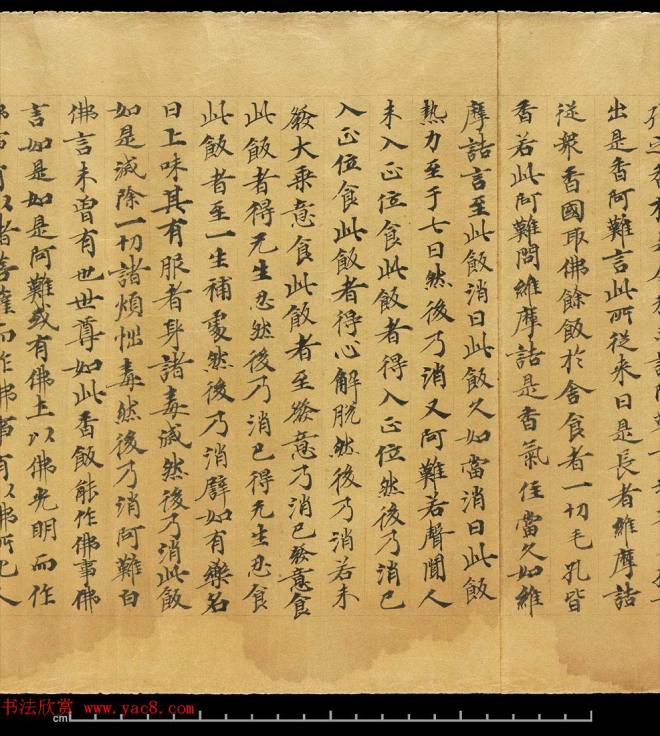 出是香阿難言此所從来曰是長者維摩詰
從衆香國取佛餘飯於舍食者一切毛孔皆
香若此阿難問維摩詰是香氣住當久如維
摩詰言至此飯消曰此飯久如當消曰此飯
熱力至于七日然後乃消又阿難若聲聞人
未入正位食此飯者得入正位然後乃消已
入正位食此飯者得心解脱然後乃消若未
發大乘意食此飯者至發意乃消已發意食
此飯者得无生忍然後乃消已得无生忍食
此飯者至一生補處然後乃消譬如有藥名
曰上味其有服者身諸毒滅然後乃消此飯
如是滅除一切諸煩惱毒然後乃消阿難白
佛言未曾有世世尊如此香飯能作佛事佛
言如是如是阿難或有佛土以佛光明而作
菩薩而作佛事有以佛所化人
书法欣赏 www.yac8.com
cm